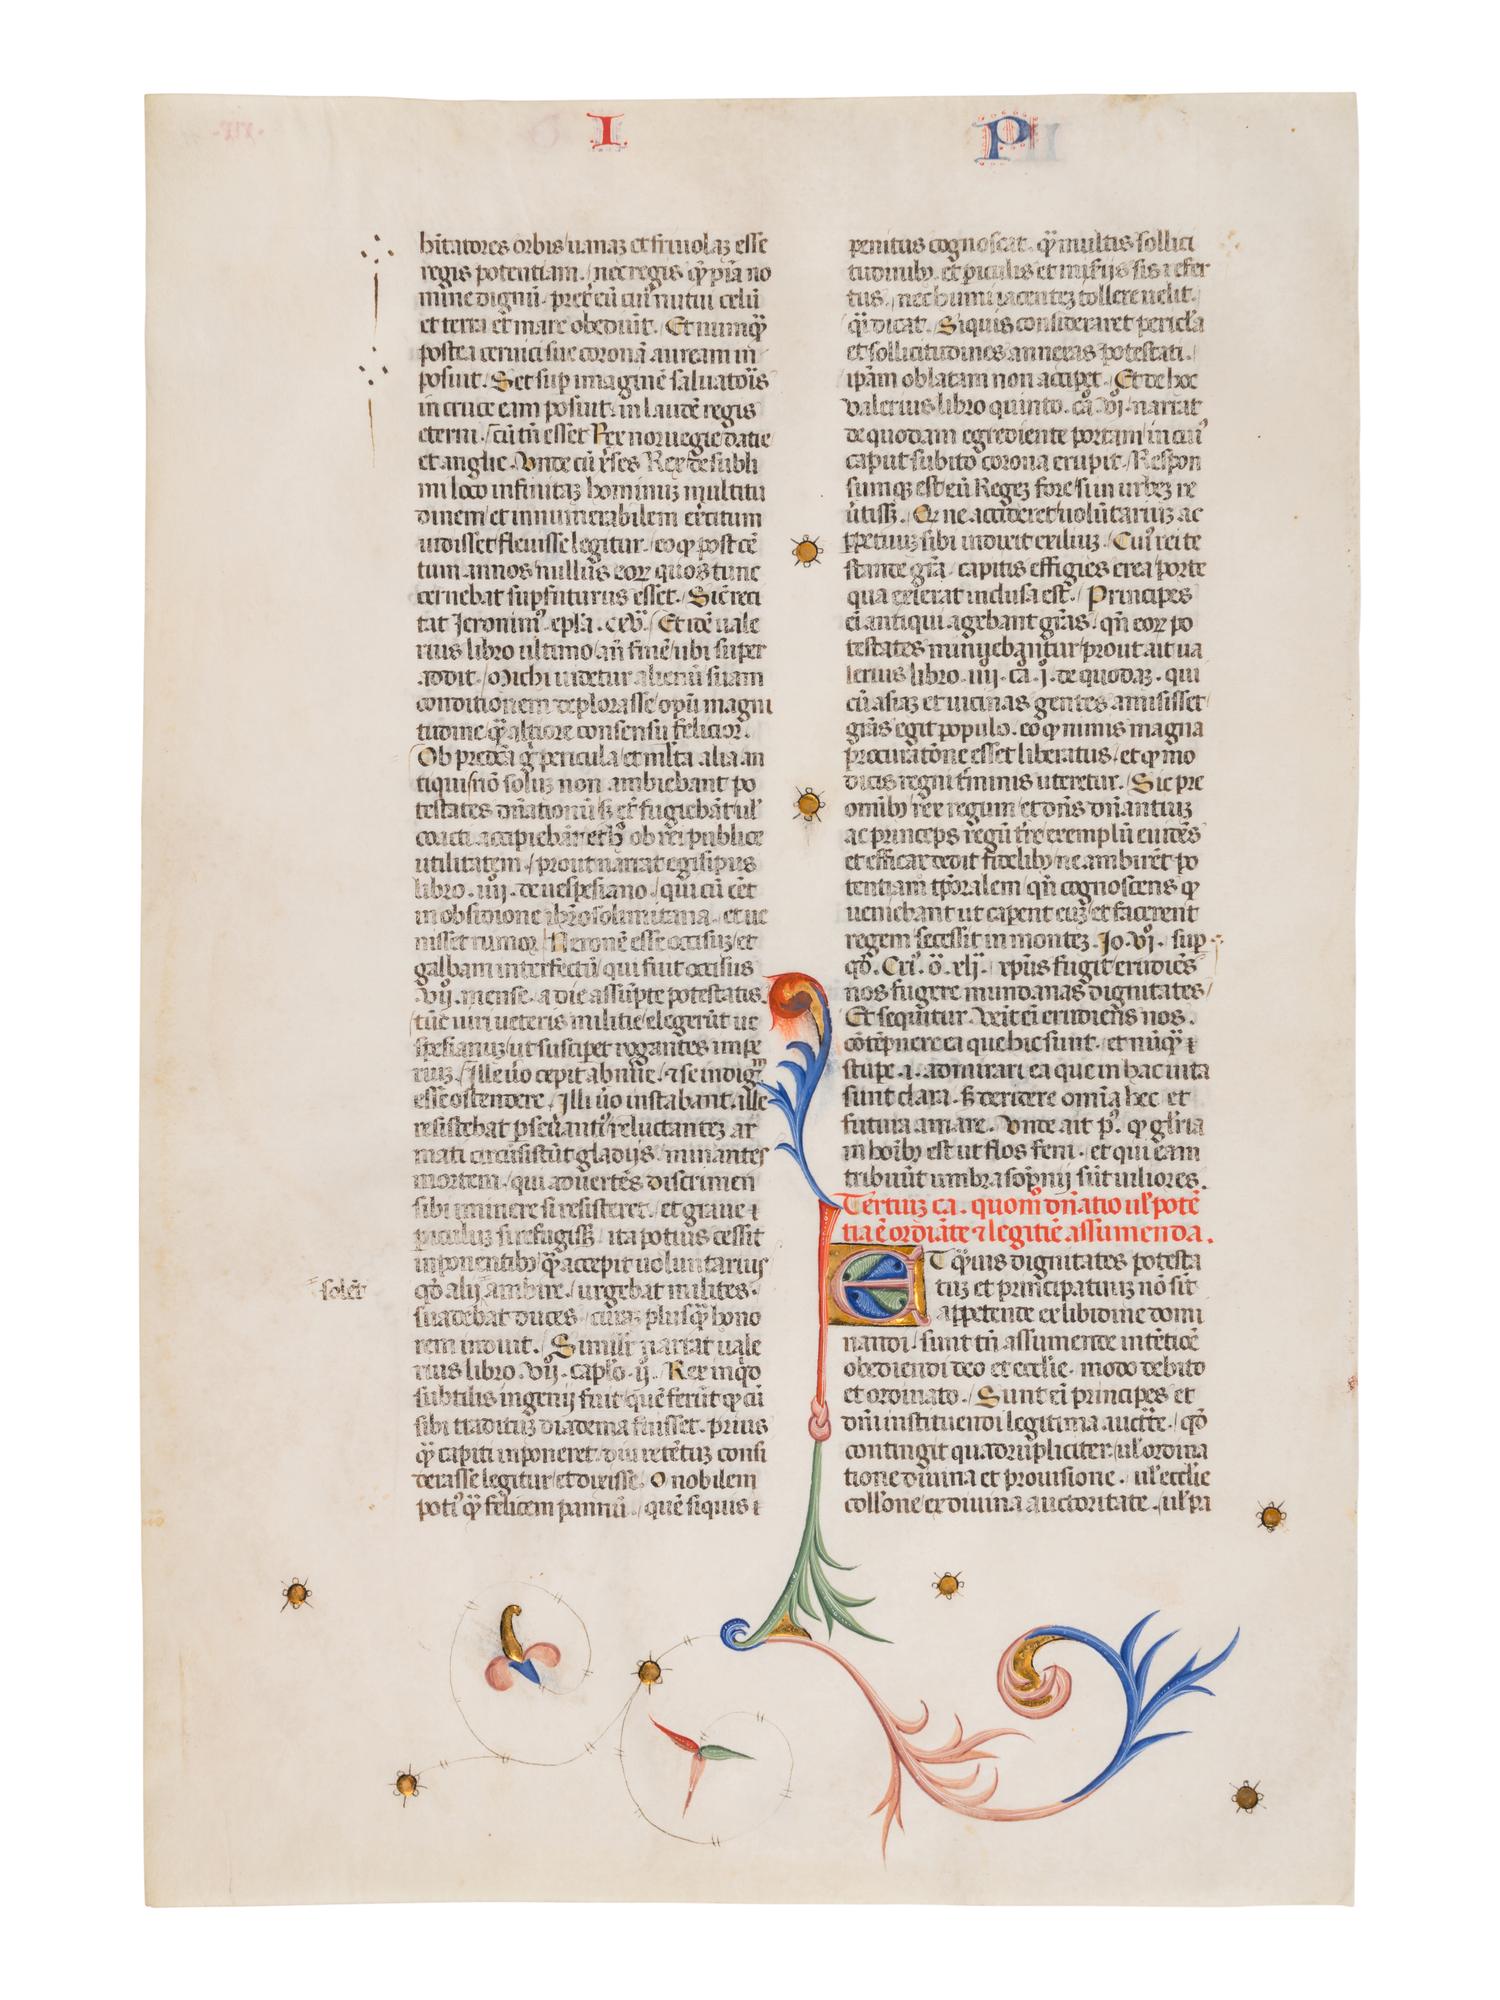 I P
bitatores orbis uanaʒ et friuolaʒ esse
regis potentiam. nec regis qͥ̄ pia no
mine dignū. preṫ eū cui᾽ nutui celū
et terra et mare obediūt. Et numqͣ̄
postea ceruici sue coronā auream in
posuit. Set sup imaginē saluatoris
in cruce eam posuit. in laudē regis
eterni. cū tn̄ esset Rex noruegie datie
et anglie. Vnde cū xerses Rex de subli
mi loco infinitaʒ hominuʒ multitu
dinem et innumerabilem exercitum
uidisset fleuisse legitur. eo ꝙ post cē
tum annos nullus eoꝝ quos tunc
cernebat supfuturus esset. Sic reci
tat Jeronim᾽ epl̄a. cxv. Et idē uale
rius libro ultimo añ finē ubi super
addit. Michi uidetur alienū suam
conditionem deplorasse opū magni
tudine qͣ̄ altiore consensu felicior.
Ob predca g̊ pericula et ml̄ta alia an
tiqui nō soluʒ non ambiebant po
testates dn̄ationū ſꝫ et fugiebāt ul᾽
coacti accipiebāt et h̊ ob rei publice
utilitatem. prout narrat egisipus
libro .iiij. de uespesiano. qui cū eēt
in obsidione ihrosolimitana. et ue
nisset rumor Neronē esse occisuʒ et
galbam interfectū qui fuit occisus
.vij. mense. a die assūpte potestatis.
tūc uiri ueteris militie elegerūt ue
spesianuʒ ut susciꝑet rogantes impe
riuʒ. Ille ūo cepit abnūe. ⁊ se indignū
esse ostendere. Illi ūo instabant. ille
resistebat ꝑseūanti᾽ reluctanteʒ ar
mati circūsistūt gladijs. minantes
mortem. qui aduertēs discrimen
sibi iminere si resisteret. et graue ī
piculuʒ si refugisꝫ. ita potius cessit
inponentibꝫ qͣ̄ accepit uoluntarius
solēt
qd̄ alij ambire. urgebat milites.
suadebat duces. curaʒ plusqͣ̄ hono
rem induit. Similiter narrat uale
rius libro .vij. caplo .ij. Rex inqͥd
subtilis ingenij fuit quē ferūt ꝙ cū
sibi traditūʒ diadema fuisset. prius
qͣ̄ capiti inponeret. diu retētuʒ consi
derasse legitur et dixisse. O nobilem
poti᾽ qͣ̄ felicem pannū. quē siquis ī
penitus cognoscat. qͣ̄ multis sollici
tudinibꝫ. et piculis et miserijs sis refer
tus. nec humi iacenteʒ tollere uelit.
qͣ̄i dicat. Siquis consideraret pericla
et sollicitudines annexas potestati.
ipam oblatam non acciꝑet. Et de hoc
valerius libro quinto. ca. vj. narrat
de quodam egrediente portam in cui᾽
caput subito cornua erupit. Respon
sumqꝫ est eū Regeʒ fore si in urbeʒ re
ūtissꝫ. Qd ne accideret uolūtariuʒ ac
ppetuuʒ sibi indixit exiliuʒ. Cui᾽ rei te
stande grā. capitis effigies erea porte
qua exierat inclusa est. Principes
eī antiqui agebant gr̄as. qn̄ eoꝝ po
testates minuebantur prout ait ua
lerius libro .iiij. ca. j. de quodaʒ. qui
cū asiaʒ et uicinas gentes amisisset
gr̄as egit populo. eo ꝙ nimis magna
procuratōne esset liberatus. et ꝙ mo
dicis regni t̄minis uteretur. Sic pre
omībꝫ rex regum et dn̄s dn̄antiuʒ
ac princeps regū t̄re exemplū euidēs
et efficax dedit fidelibꝫ ne ambirēt po
tentiam tp̄oralem. qn̄ cognoscens ꝙ
ueniebant ut caperent euʒ et facerent
regem secessit in monteʒ. Jo. vj. sup
qō. Cri᾽. ō. xlij. xp̄us fugit erudiēs
nos fugere mundanas dignitates.
Et sequitur. Venit eī erudiens nos.
cōtēpnere ea que hic sunt. et nūqͣ̄ ī
stupe .i. admirari ea que in hac uita
sunt clara. ſꝫ deridere omīa hec et
futura amare. Vnde ait p᾽. ꝙ glīria
in hoibꝫ est ut flos feni. et qui eam
tribuūt umbra sopnij sūt uiliores.
Tertiuʒ ca. quom᾽ dn̄atio ul᾽ potē
tia ē ordīate ⁊ legitīe assumenda.
ET qͣ̄uis dignitates potesta
tuʒ et principatiuʒ nō sīt
appetende ex libidine domi
nandi. sunt tn̄ assumende intētiōe
obediendi deo et ecclīe. modo debito
et ordinato. Sunt eī principes et
dn̄i instituendi legitima auctt̄e. qd̄
contingit quadrupliciter. ul᾽ ordina
tione diuina et prouisione. ul᾽ ecclīe
coll᾽one ex diuina auctoritate. ul᾽ pa